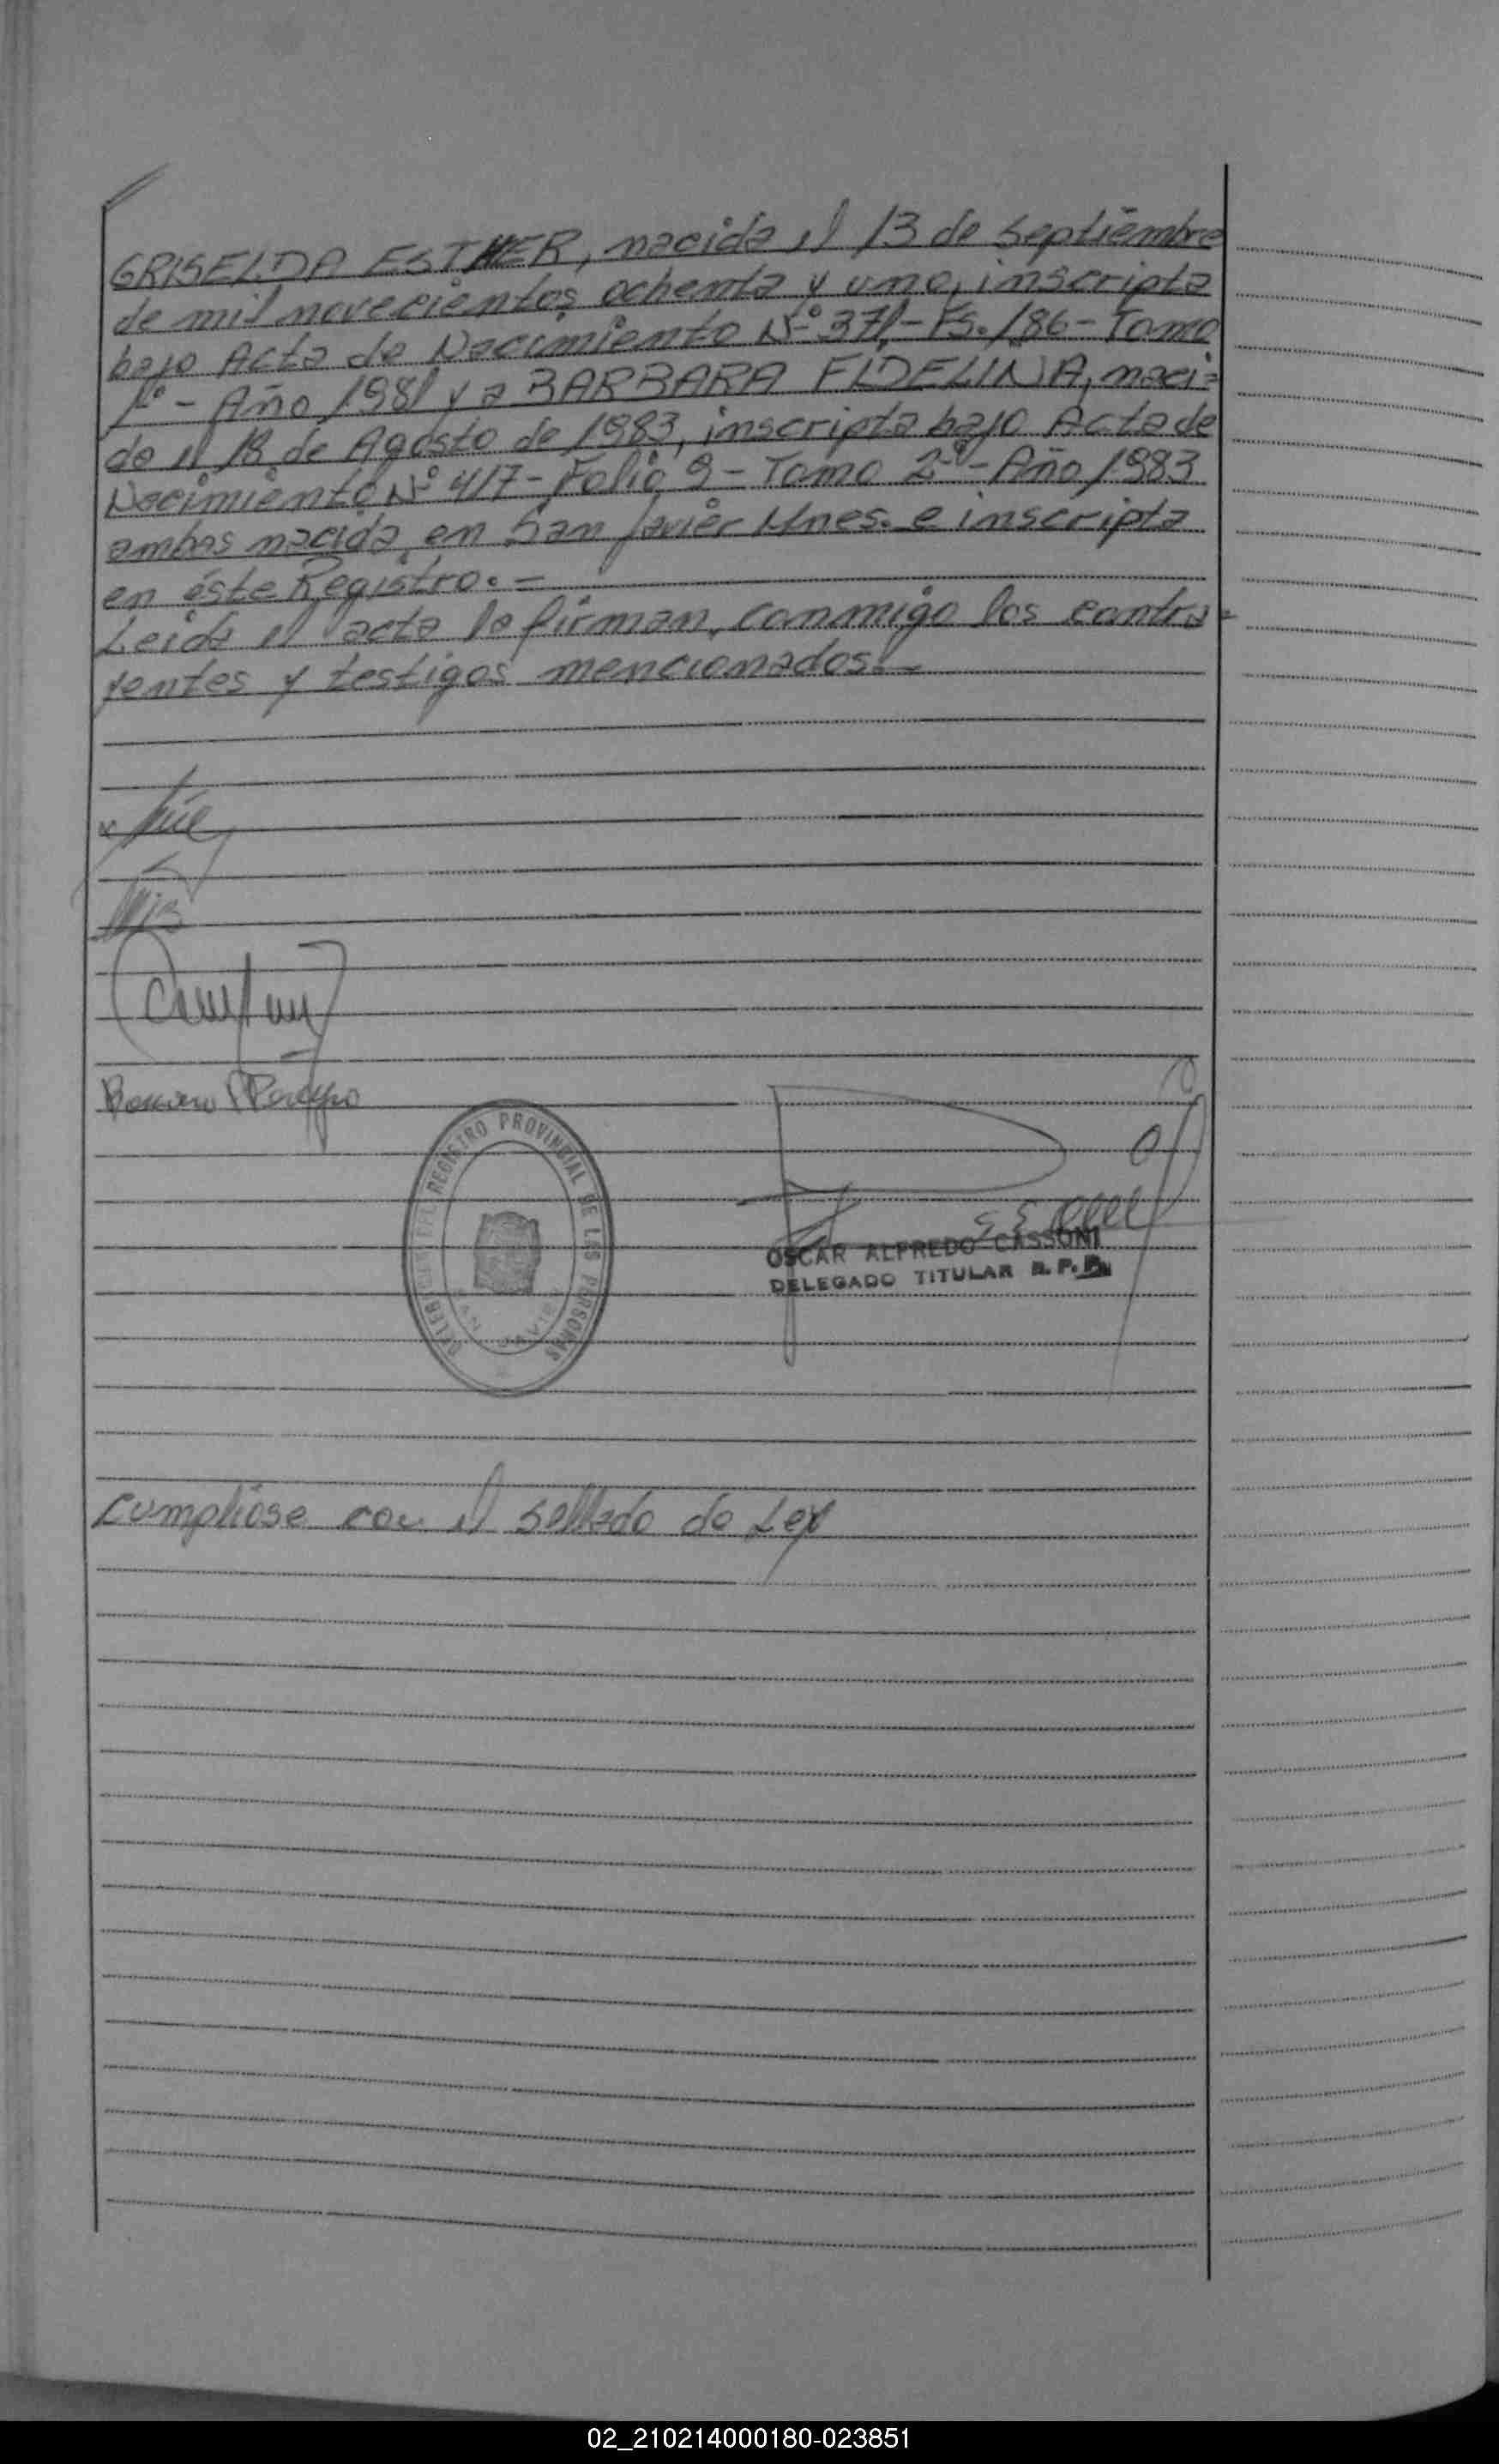 GRISELDA ESTHER, nacida el 13 de Septiembre
de mil novecientos ochenta y uno, inscripta
bajo Acta de Nacimiento Nº 371,- Fs. 186- Tomo
1º - Año 1981 y a BARBARA FIDELINA, naci=
da el 18 de Agosto de 1983, inscripta bajo Acta de
Nacimiento Nº 417- Folio 9 - Tomo 2º - Año 1983
ambas nacida en San Javier Mnes. e inscripta
en éste Registro. -
Leida el acta la firman, conmigo los contra=
yentes y testigos mencionados.-
REGISTRO PROVINCIAL DE LAS PERSONAS
SAN JAVIER
OSCAR ALFREDO CASSONI
DELEGADO TITULAR R. P. P.
Cumpliose con el sellado de Ley
02_210214000180-023851